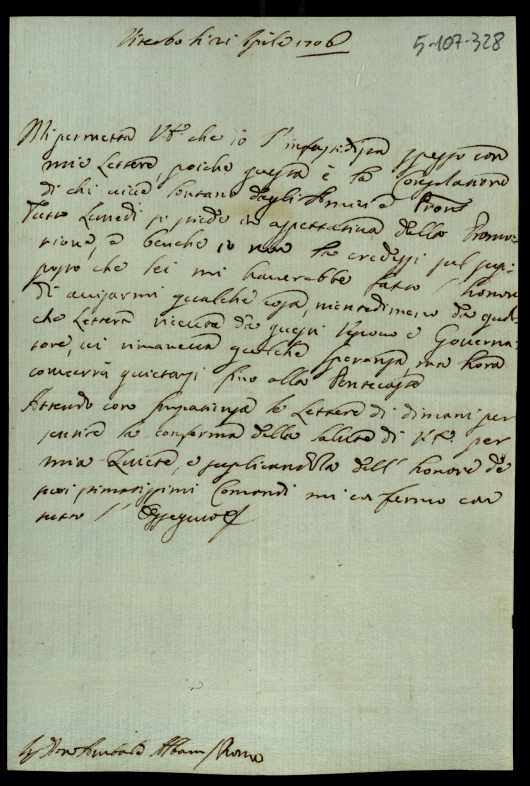 Viterbo li 21 Aprile 1706
5-107-328
Mi permetta V.S. che io l'infastidisca spesso con
mie Lettere, poiche questa è la Consolatione
di chi vive lontano dagli Amici e Proni
Tutto Lunedi si stiede in aspettativa della Promo-
tione, e benche io non la credessi sul sup-
posto che lei mi haverebbe fatto l'honore
di avisarmi qualche cosa, nientedimeno da qual-
che Lettera ricevuta da questi Vescovo e Governa-
tore, vi rimaneva qualche speranza, ma hora
converrà quietarsi fino alla Pentecoste
Attendo con impazienza le Lettere di dimani per
sentire la conferma della salute di V.S. per
mia Quiete, e suplicandola dell'honore de
suoi stimatissimi Comandi mi confermo con
tutto l'Ossequio
Annibale Albani / Roma